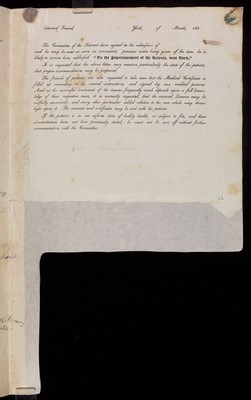 Esteemed Friend, York, of Month, 183
The Committee of the Retreat have agreed to the admission of
and he may be sent as soon as convenient; previous notice being given of the time he is
likely to arrive here, addressed "To the Superintendent of the Retreat, near York."
It is requested that the above letter may mention particularly the state of the patient,
that proper accommodation may be prepared.
The friends of patients are also requested to take care that the Medical Certificate is
filled up according to the annexed instructions, and signed by two medical persons.
And as the successful treatment of the insane frequently much depends upon a full know-
ledge of their respective cases, it is earnestly requested, that the annexed Queries may be
carefully answered, and every other particular added relative to the case which may throw
light upon it. The answers and certificates may be sent with the patient.
If the patient is in an infirm state of bodily health, or subject to fits, and these
circumstances have not been previously stated, he must not be sent off without further
communication with the Committee.